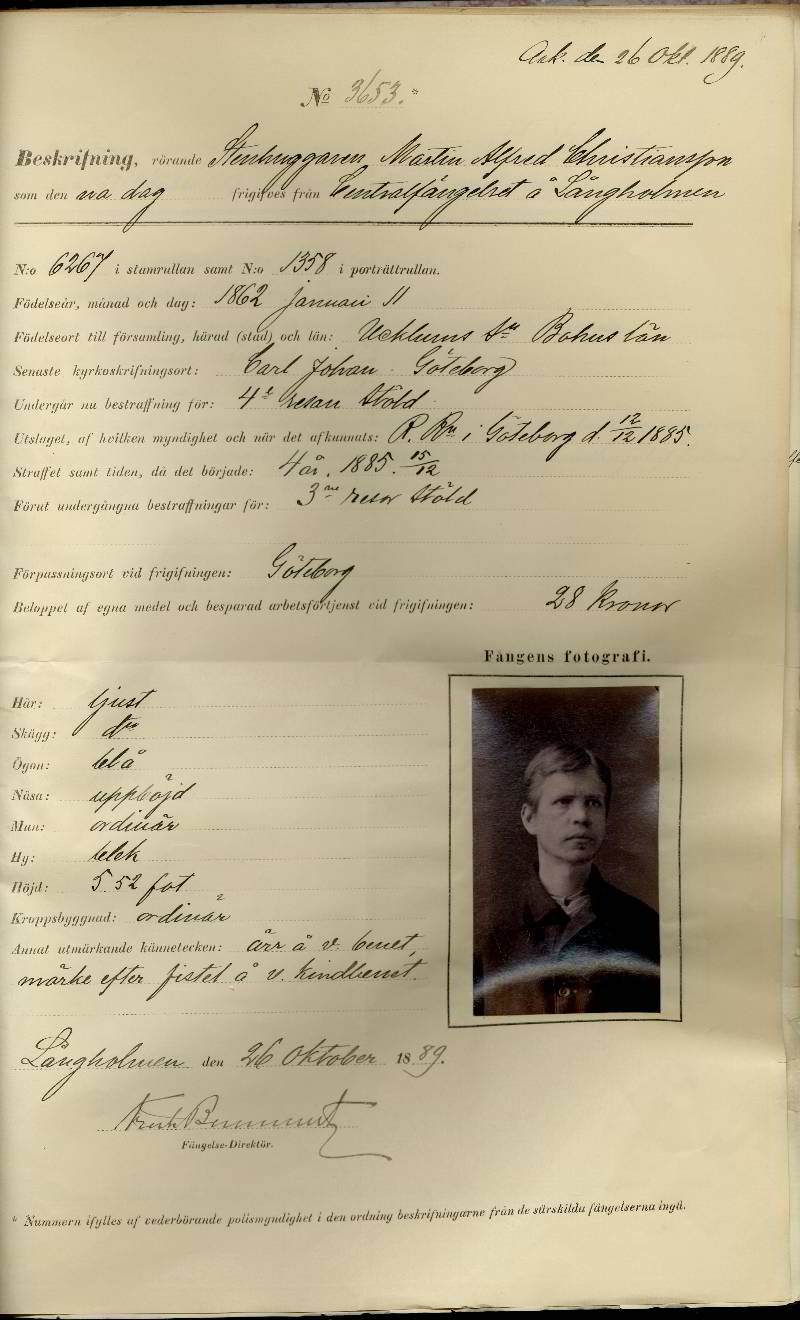 Ank. den 26 Okt. 1889.
No 3653.*
Beskrifning, rörande Stenhuggaren Martin Alfred Christiansson
som den na dag frigifves från Centralfängelset å Långholmen
N:o 6267 i stamrullan samt N:o 1358 i porträttrullan.
Födelseår, månad och dag: 1862 januari 11
Födelseort till församling, härad (stad) och län: Ucklums Sn Bohus län
Senaste kyrkoskrifningsort: Carl Johan Göteborg
Undergår nu bestraffning för: 4e resan stöld
Utslaget, af hvilken myndighet och när det afkunnats: R. Rn i Göteborg d. 12/12 1885.
Straffet samt tiden, då det började: 4 år. 1885. 15/12
Förut undergångna bestraffningar för: 3ne resor stöld
Förpassningsort vid frigifningen: Göteborg
Beloppet af egna medel och besparad arbetsförtjenst vid frigifningen: 28 kronor
Fångens fotografi.
Hår: ljust
Skägg: do
Ögon: blå
Näsa: uppböjd
Mun: ordinär
Hy: blek
Höjd: 5.52 fot
Kroppsbyggnad: ordinär
Annat utmärkande kännetecken: ärr å v. benet,
märke efter fistel å v. kindbenet.
Långholmen den 26 Oktober 1889.
Fängelse-Direktör.
* Nummern ifylles af vederbörande polismyndighet i den ordning beskrifningarne från de särskilda fängelserna ingå.